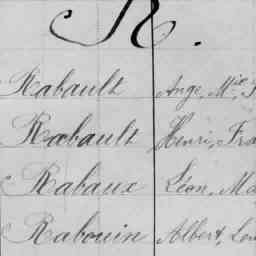 R.
Rabault Ange, Mie,
Rabault Henri, Fra
Rabaux Léon, Ma
Rabouin Albert, Lou